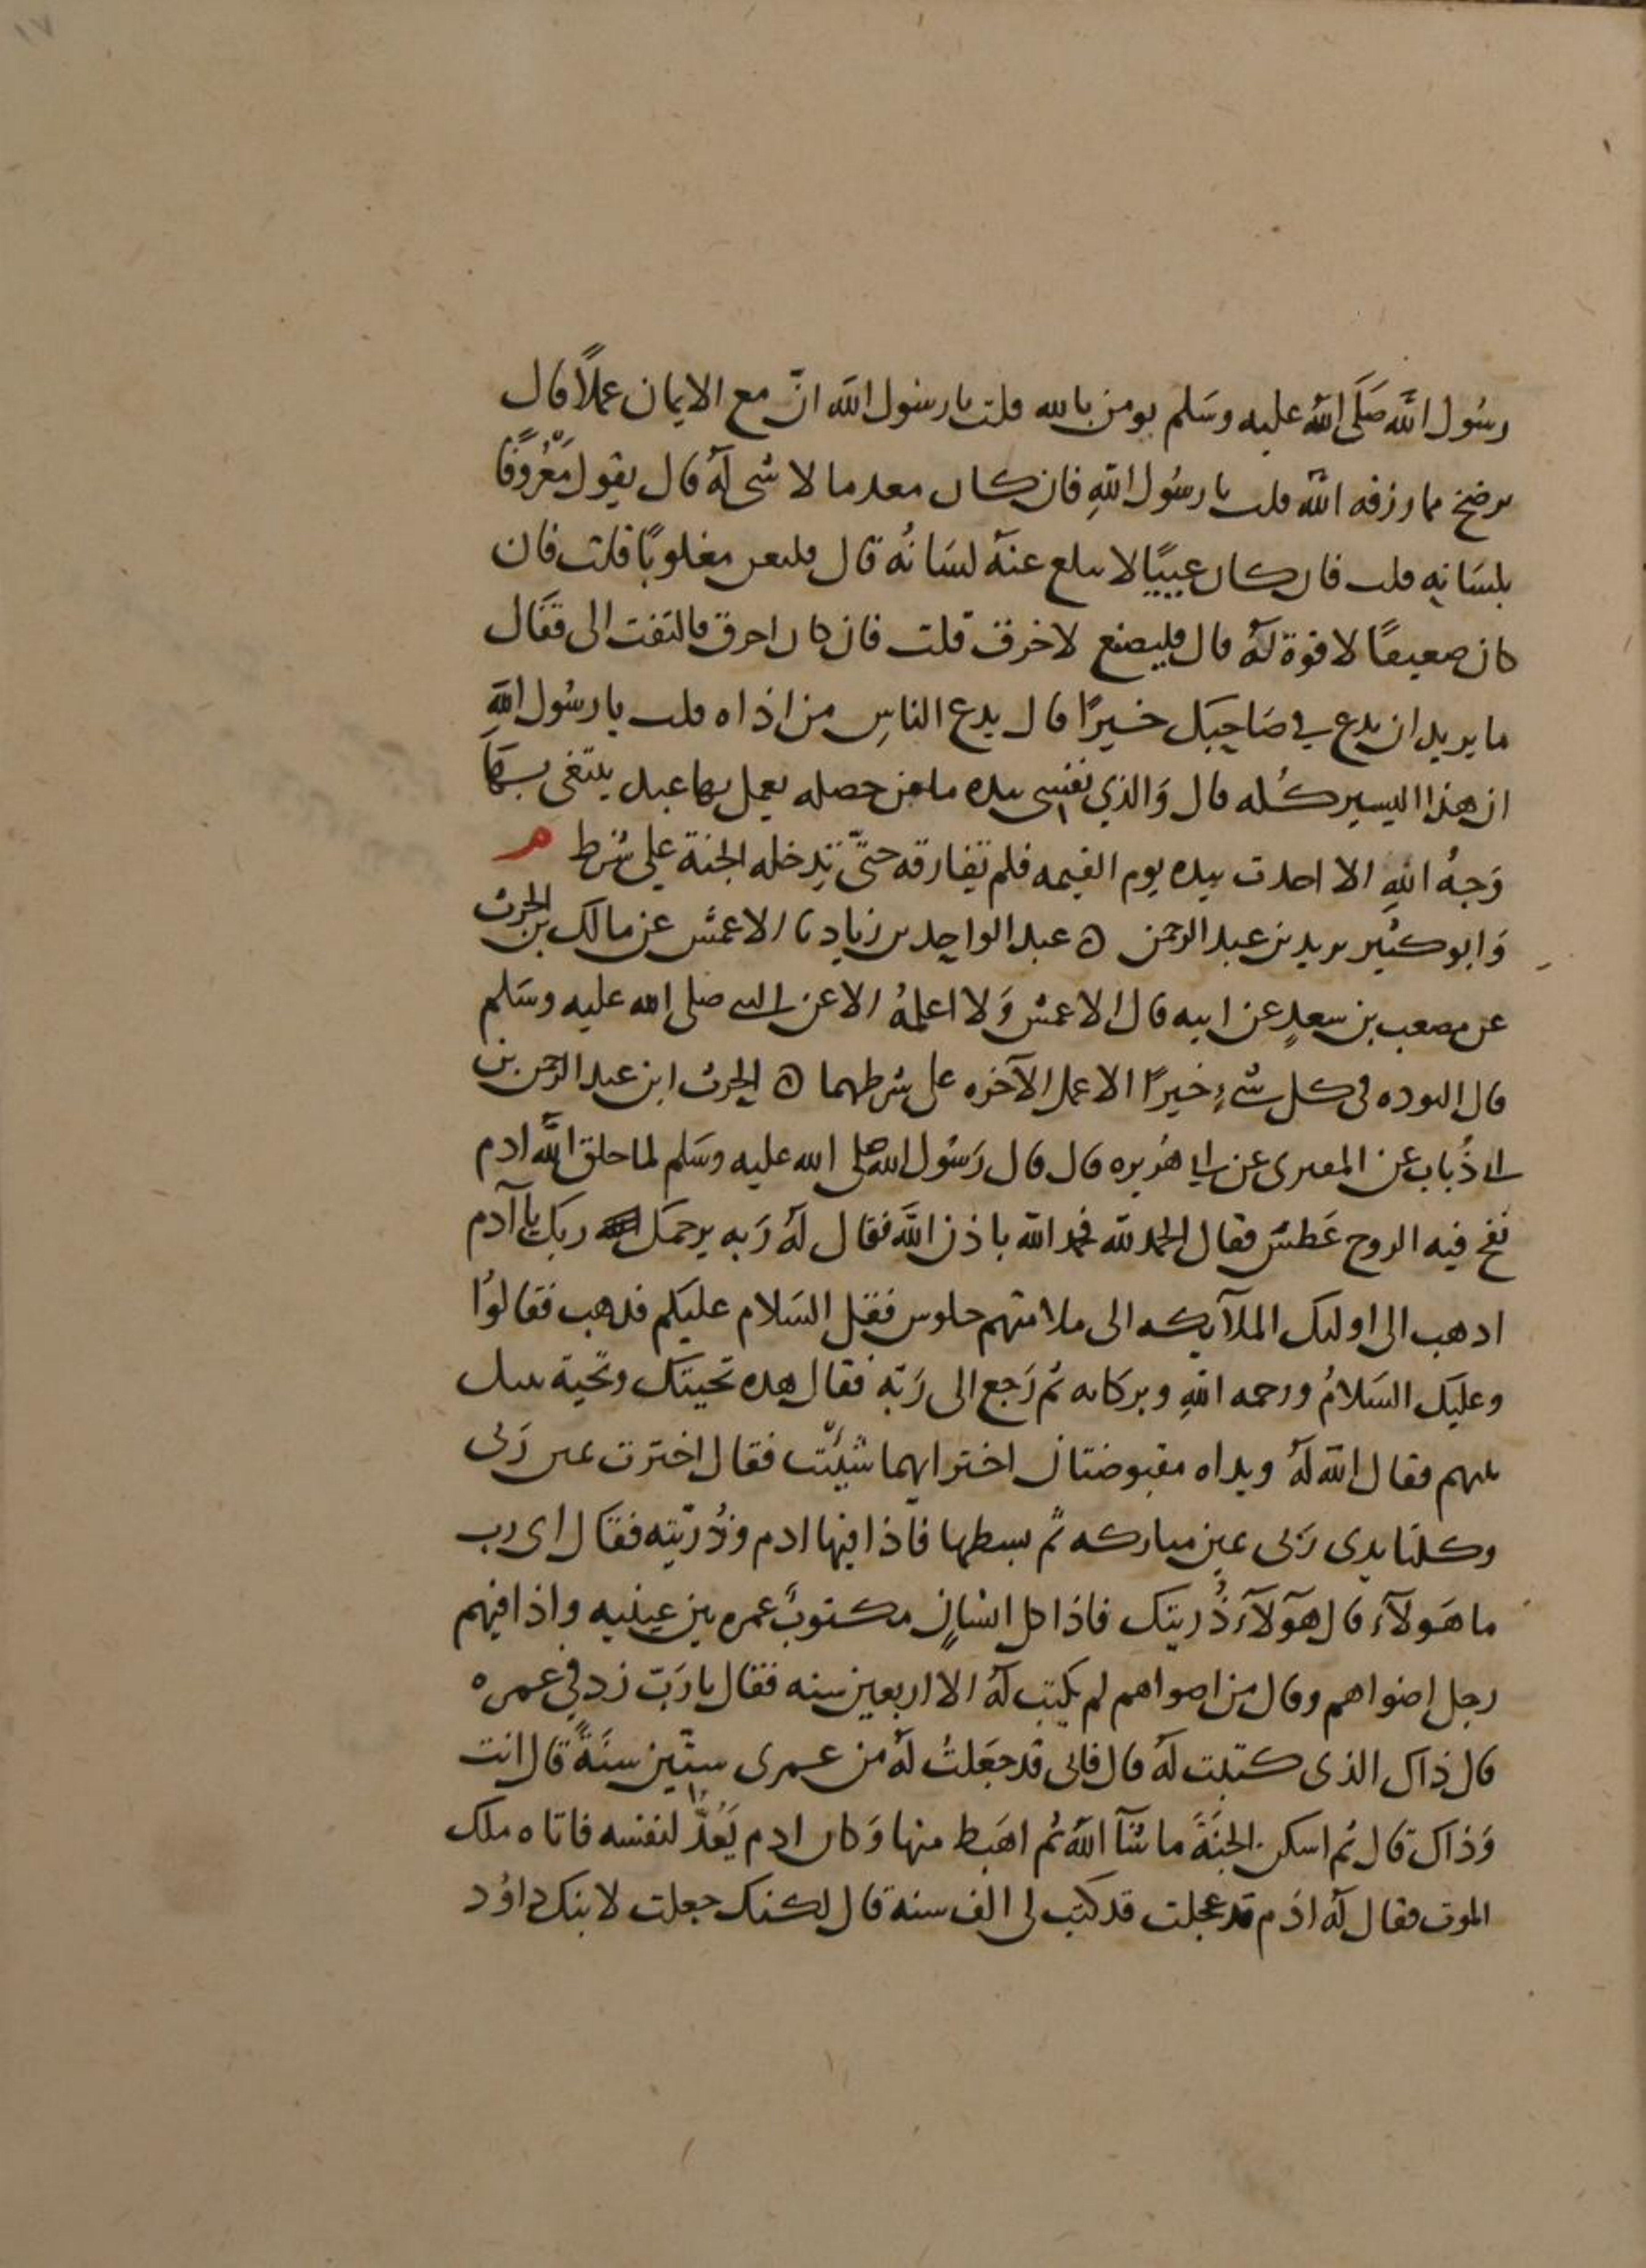 رسُول الله صَلَى الله عليه وسَلم يومن بالله قلت يا رسول الله انّ مع الايمان عملاً قال
يرضخ مما رزقه الله قلت يا رسُول اللهِ فان كان معدما لا شى لهُ قال يقول مَعْرُوفًا
بلسَانِهِ قلت فان كان عييًا لا يبلغ عنهُ لسَانُه قال فليعن مغلوبًا قلت فان
كان ضعيفًا لا قوة لهُ قال فليصنع لاخرق قلت فان كان اخرق فالتفت الى فقال
ما يريد ان يدع في صَاحِبِك خيرًا قال يدع الناسِ من اذاه قلت يا رسُول اللهِ
ان هذا اليسير كُله قال وَالذي نفسى بيده ما من خصله يعمل بها عبد يبتغى بهَا
وَجهُ اللهِ الا اخذت بيده يوم القيمه فلم تفارقه حتّى تدخله الجنة على شرط م
وَابو كثير يزيد بن عبد الرحمن ه عبد الواحِد بن زياد نا الاعمش عن مالك بن الحرث
عن مصعب بن سعدٍ عن ابيه قال الاعمش وَلا اعلمهُ الا عن النبي صلى الله عليه وسَلم
قال التوده فى كل شىءٍ خيرًا الا عمل الآخره على شرطهما ه الحرث ابن عبد الرحمن بن
ابى ذُباب عن المقبرى عن ابى هُريره قال قال رَسُول الله صلى الله عليه وسَلم لما خلق الله ادم
نفخ فيه الروح عَطسَ فقال الحمد لله فحمد الله باذن الله فقال لهُ رَبه يرحمك ربك يا آدم
اذهب الى اوليك الملآيكه الى ملا منهم جلوس فقل السَلام عليكم فذهب فقالوُا
وعليك السَلامُ ورحمه اللهِ وبركاته ثم رَجع الى رَبّه فقال هذه تحيتك وتحية بنيك
بينهم فقال الله لهُ ويداه مقبوضتان اختر ايهما شئت فقال اخترت يمين رَبى
وكلتا يدى رَبى يمين مباركه ثم بسطها فاذا فيها ادم وذُرّيته فقال اى رب
ما هَولآء قال هَولآء ذُريتك فاذا كل انسَانٍ مكتوبٌ عمره بين عينيه واذا فيهم
رجل اضواهم وقال من اضواهم لم يكتب لهُ الا اربعين سنه فقال يا رَبّ زد فى عمره
قال ذاك الذى كتبت لهُ قال فانى قد جَعَلتُ لهُ من عمرى ستّين سَنَةً قال انت
وَذاك قال ثم اسكن الجنَةَ ما شَآ اللهُ ثم اهَبط منها وَكان ادم يَعُدّ لنفسه فاتاه ملك
الموت فقال لهُ ادَم قد عجلت قد كتب لى الف سنه قال لكنك جعلت لابنك داوُد